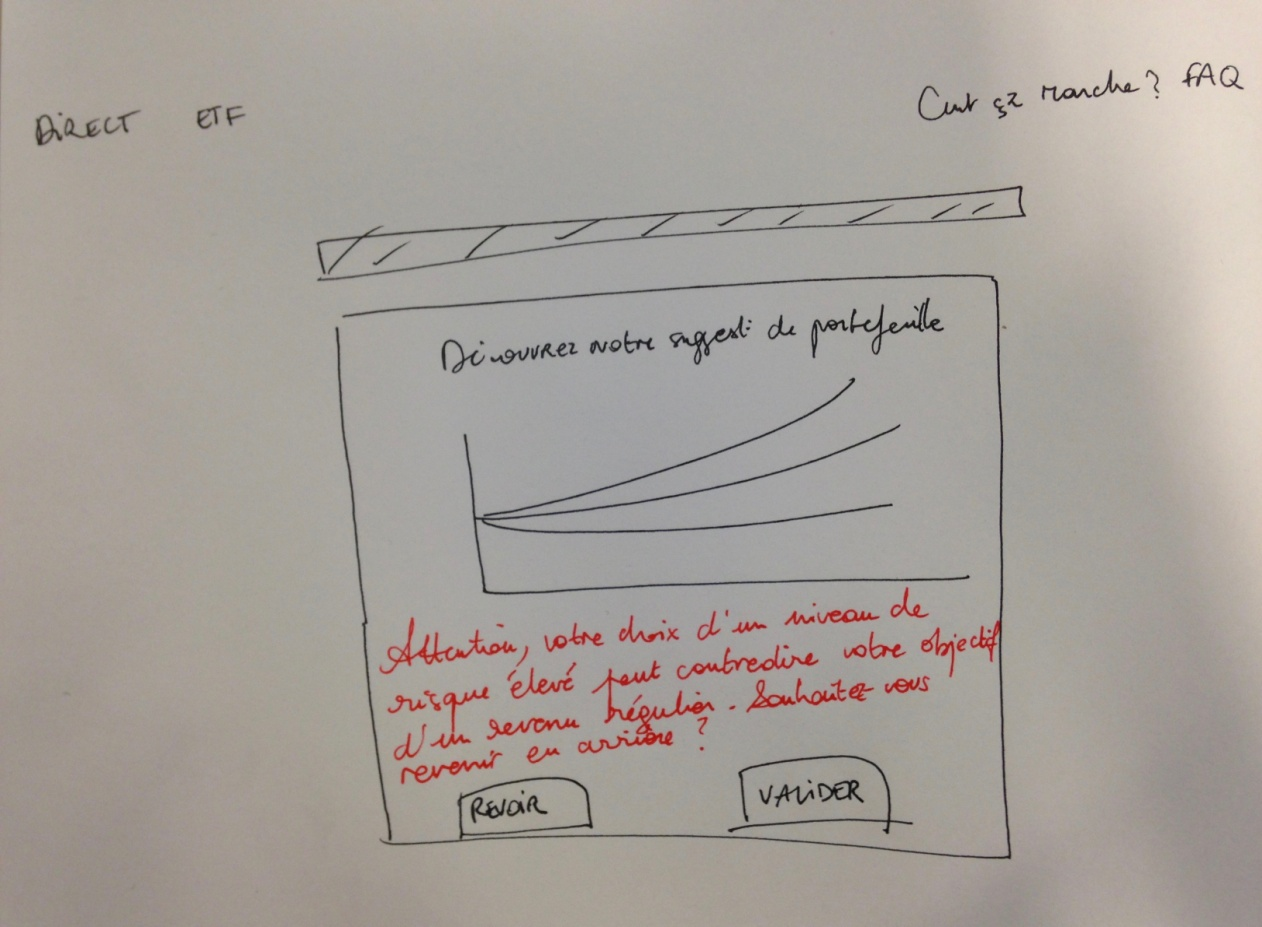 DIRECT ETF
Cmt ça marche? FAQ
Découvrez notre suggest° de portefeuille
Attention, votre choix d'un niveau de
risque élevé peut contredire votre objectif
d'un revenu régulier. Souhaitez vous
revenir en arrière ?
REVOIR
VALIDER